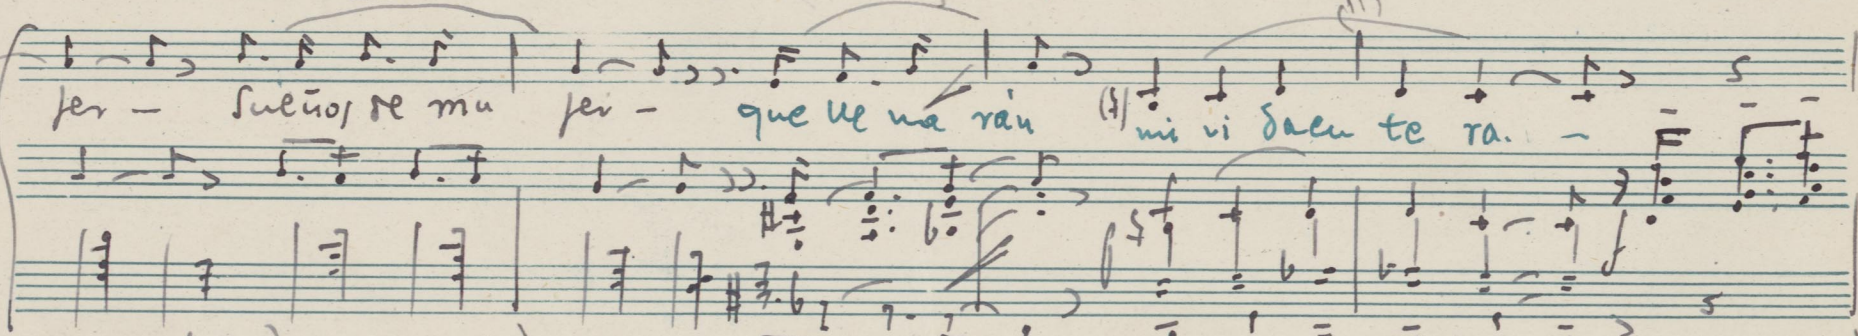 jer - sueños de mu jer - que lle na rán mi vi daen te ra. -